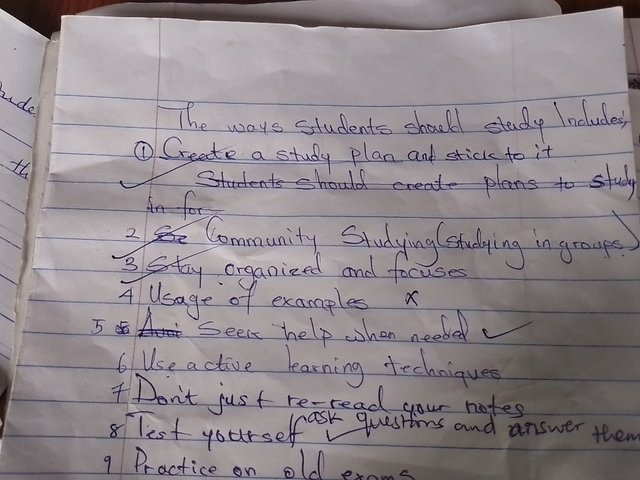 The ways students should study Includes;
① Create a study plan and stick to it
Students should create plans to study
in for
2 Community Studying (studying in groups)
3 Stay organized and focuses
4 Usage of examples x
5 Seek help when needed ✓
6 Use active learning techniques
7 Don't just re-read your notes
8 Test yourself ask questions and answer them
9 Practice on old exams